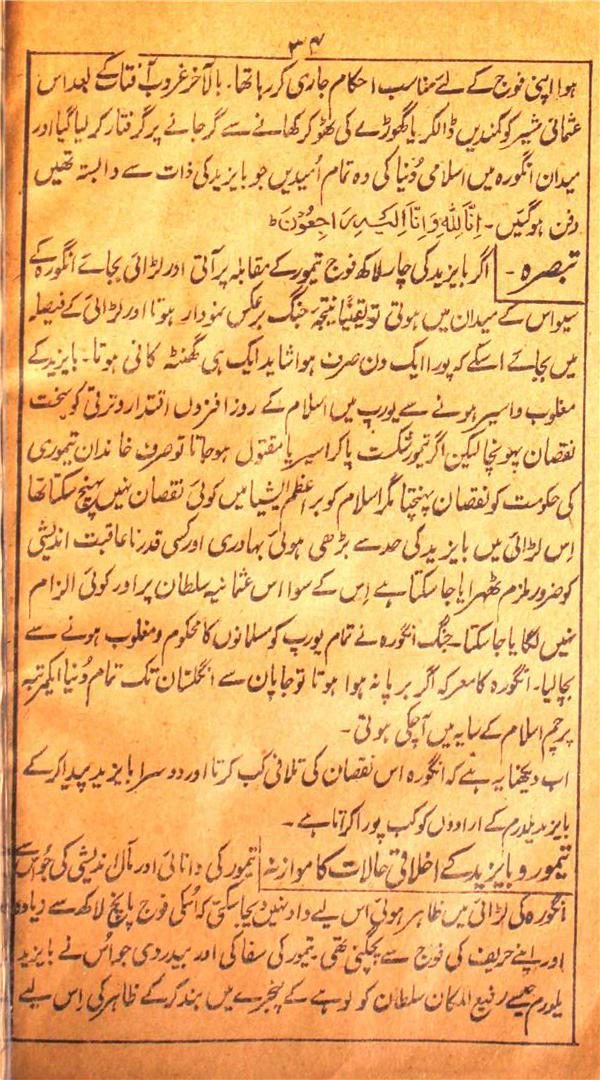 ۳۴
ہوا اپنی فوج کے لئے مناسب احکام جاری کر رہا تھا۔ بالآخر غروب آفتاب کے بعد اس
عثمانی شیر کو کمندیں ڈالکر یا گھوڑے کی ٹھوکر کھانے سے گر جانے پر گرفتار کر لیا گیا اور
میدان انگورہ میں اسلامی دُنیا کی وہ تمام اُمیدیں جو بایزید کی ذات سے وابستہ تھیں
دفن ہو گئیں۔ اِنَّا لِلّٰہِ وَاِنَّا اِلَیْہِ رَاجِعُوْنَ ط
تبصرہ۔ اگر بایزید کی چار لاکھ فوج تیمور کے مقابلہ پر آتی اور لڑائی بجائے انگورہ کے
سیواس کے میدان میں ہوتی تو یقیناً نتیجہ جنگ برعکس نمودار ہوتا اور لڑائی کے فیصلہ
میں بجائے اسکے کہ پورا ایک دن صرف ہوا شاید ایک ہی گھنٹہ کافی ہوتا۔ بایزید کے
مغلوب و اسیر ہونے سے یورپ میں اسلام کے روز افزوں اقتدار و ترقی کو سخت
نقصان پہونچا لیکن اگر تیمور شکست پا کر اسیر یا مقتول ہو جاتا تو صرف خاندان تیموری
کی حکومت کو نقصان پہنچتا مگر اسلام کو براعظم ایشیا میں کوئی نقصان نہیں پہنچ سکتا تھا
اِس لڑائی میں بایزید کی حد سے بڑھی ہوئی بہادری اور کسی قدر ناعاقبت اندیشی
کو ضرور ملزم ٹھہرایا جا سکتا ہے اِس کے سوا اس عثمانیہ سلطان پر اور کوئی الزام
نہیں لگایا جا سکتا۔ جنگ انگورہ نے تمام یورپ کو مسلمانوں کا محکوم و مغلوب ہونے سے
بچا لیا۔ انگورہ کا معرکہ اگر برپا نہ ہوا ہوتا تو جاپان سے انگلستان تک تمام دُنیا ایکمرتبہ
پرچم اسلام کے سایہ میں آ چکی ہوتی۔
اب دیکھنا یہ ہے کہ انگورہ اس نقصان کی تلافی کب کرتا اور دوسرا بایزید پیدا کر کے
بایزید یلدرم کے ارادوں کو کب پورا کراتا ہے۔
تیمور و بایزید کے اخلاقی حالات کا موازنہ تیمور کی دانائی اور مآل اندیشی کی جو اس سے
انگورہ کی لڑائی میں ظاہر ہوئی اس لیے داد نہیں دیجا سکتی کہ اُسکی فوج پانچ لاکھ سے زیادہ
اور اپنے حریف کی فوج سے چگنی تھی۔ تیمور کی سفاکی اور بیدردی جو اُس نے بایزید
یلدرم جیسے رفیع المکان سلطان کو لوہے کے پنجرے میں بند کر کے ظاہر کی اِس لیے